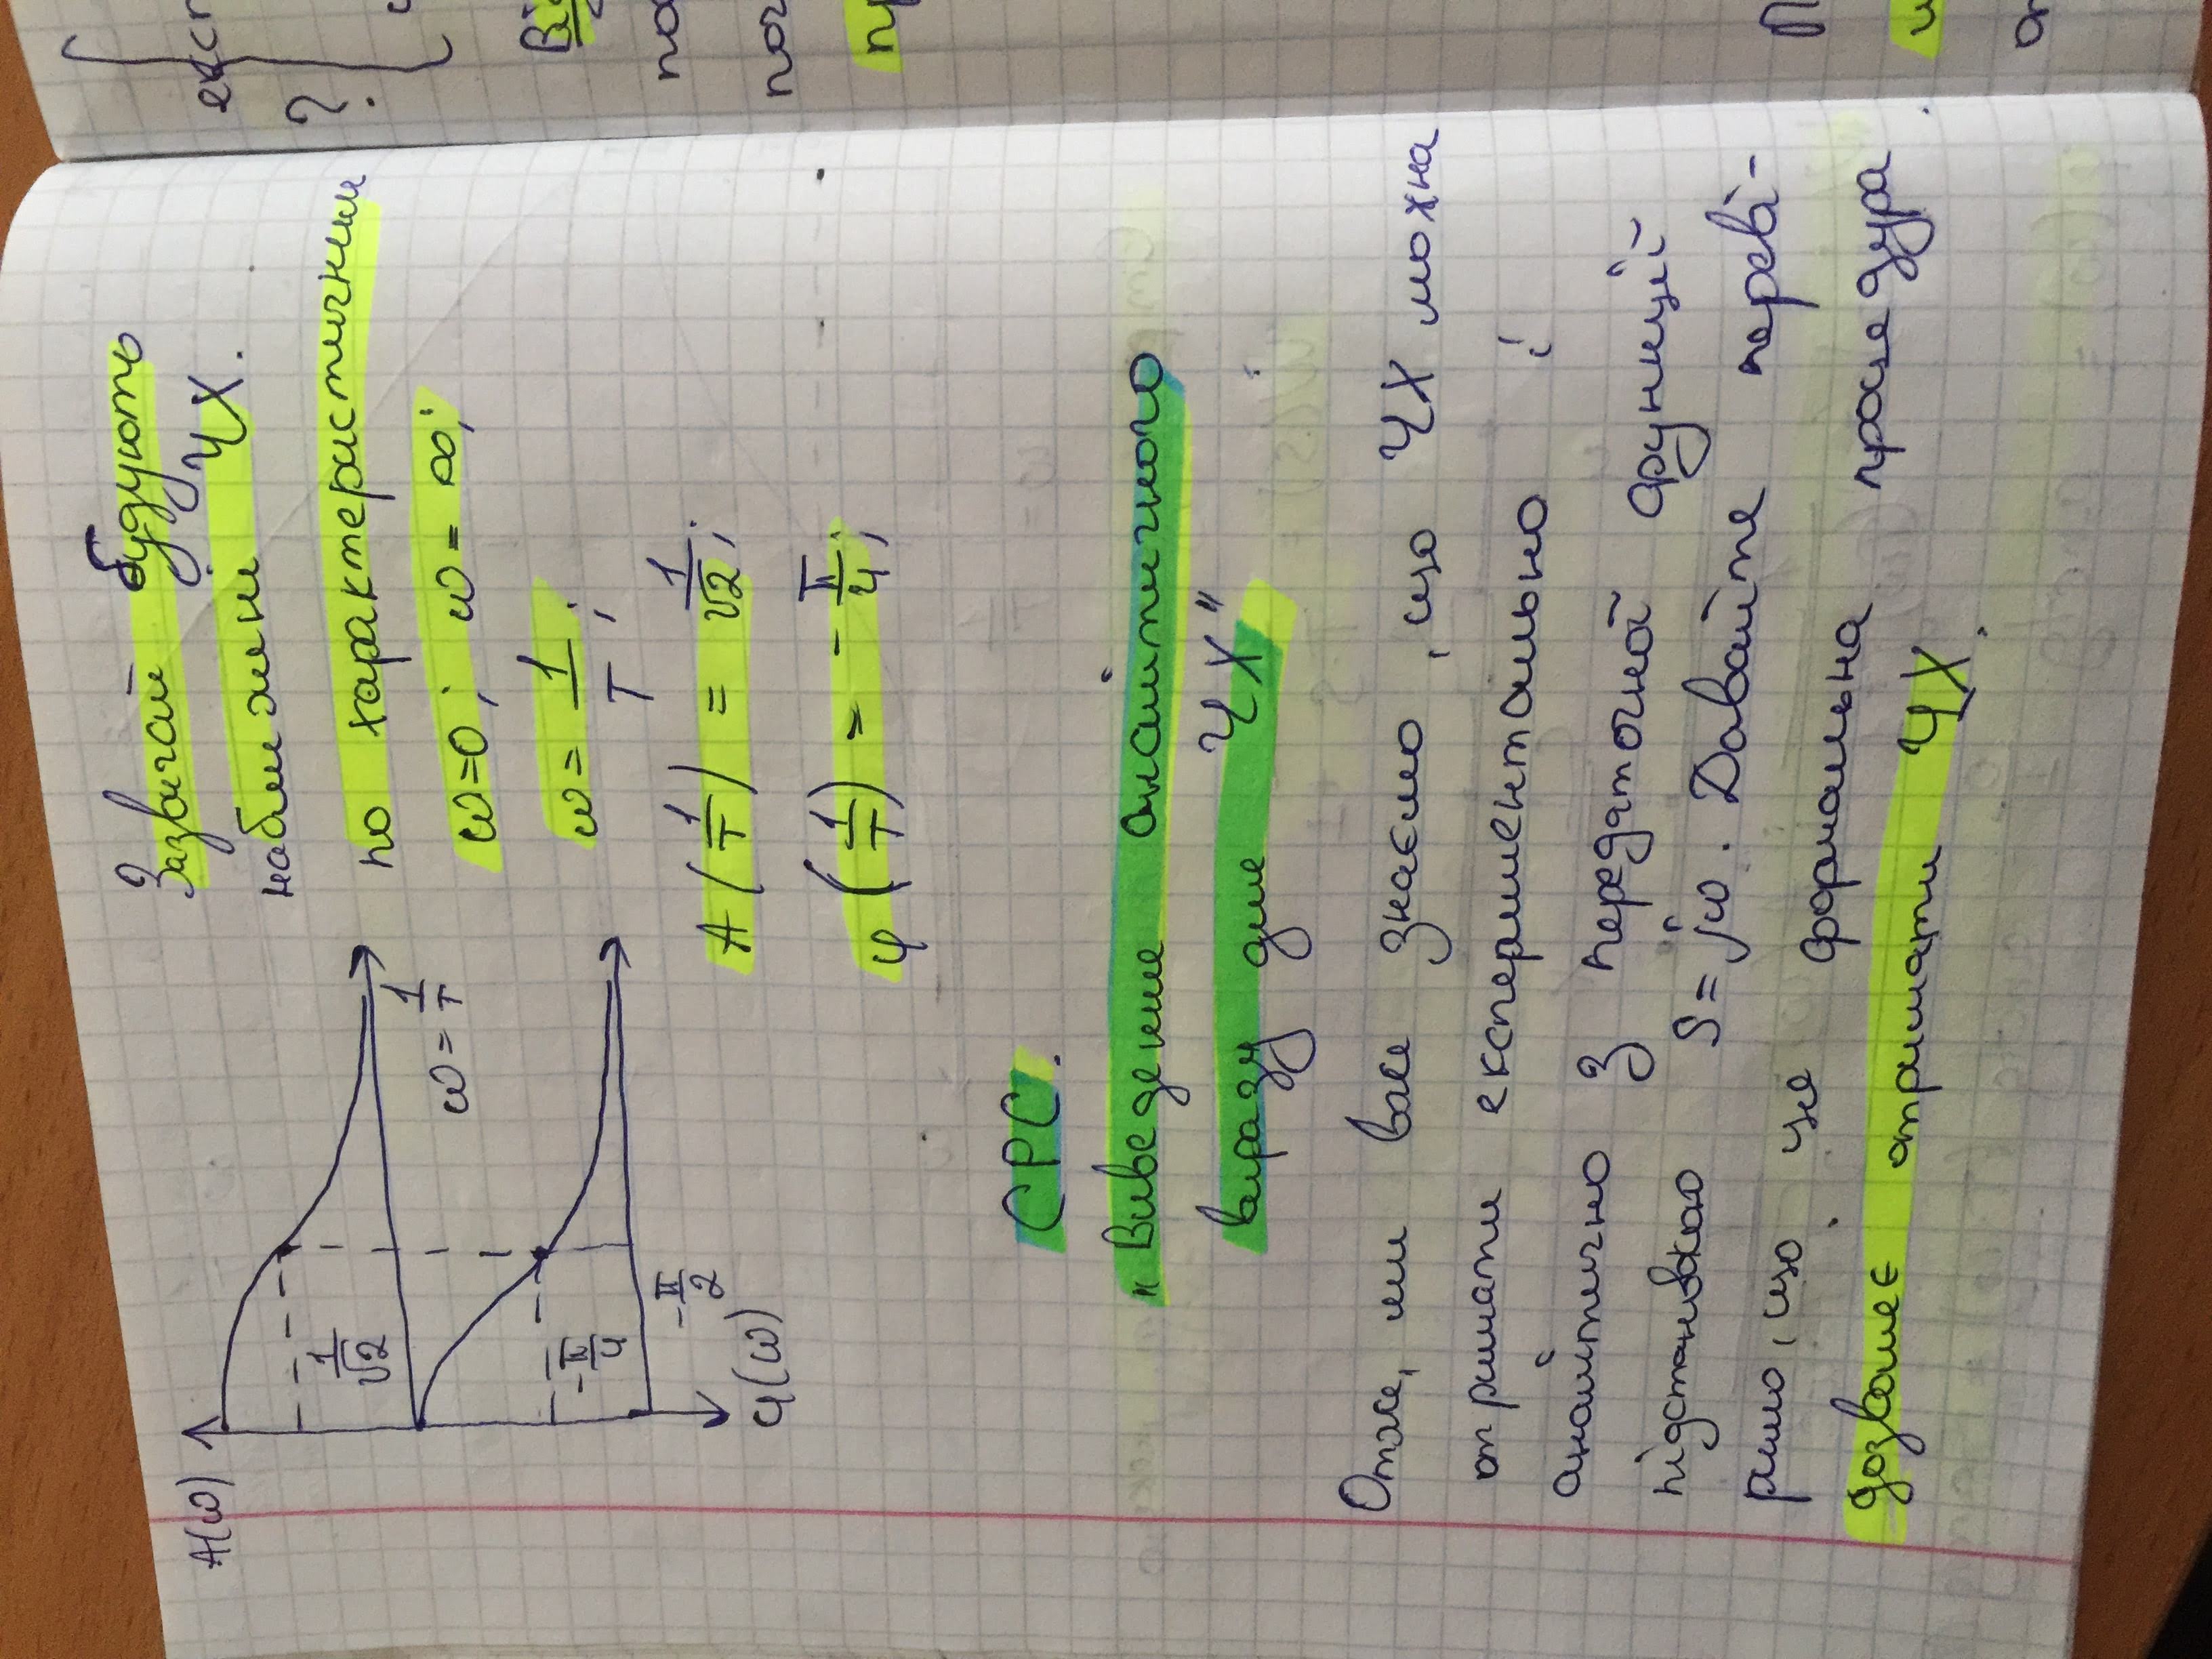 A(ω)
1/√2
ω = 1/T
-π/4
-π/2
φ(ω)
Зазвичай будують
наближені ЧХ.
по характеристичним
ω=0; ω=∞;
ω = 1/T;
A(1/T) = 1/√2;
φ(1/T) = -π/4;
СРС.
"Виведення аналітичного
виразу для ЧХ"
Отже, ми вже знаємо, що ЧХ можна
отримати експериментально і
аналітично з передаточної функції
підстановкою S=jω. Давайте переві-
римо, що ця формальна процедура
дозволяє отримати ЧХ.
експ
?
Ві
по
поч
пр
П